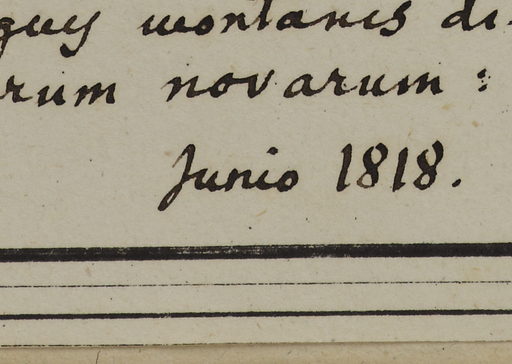 montanis di-
rum novarum:
Junio 1818.